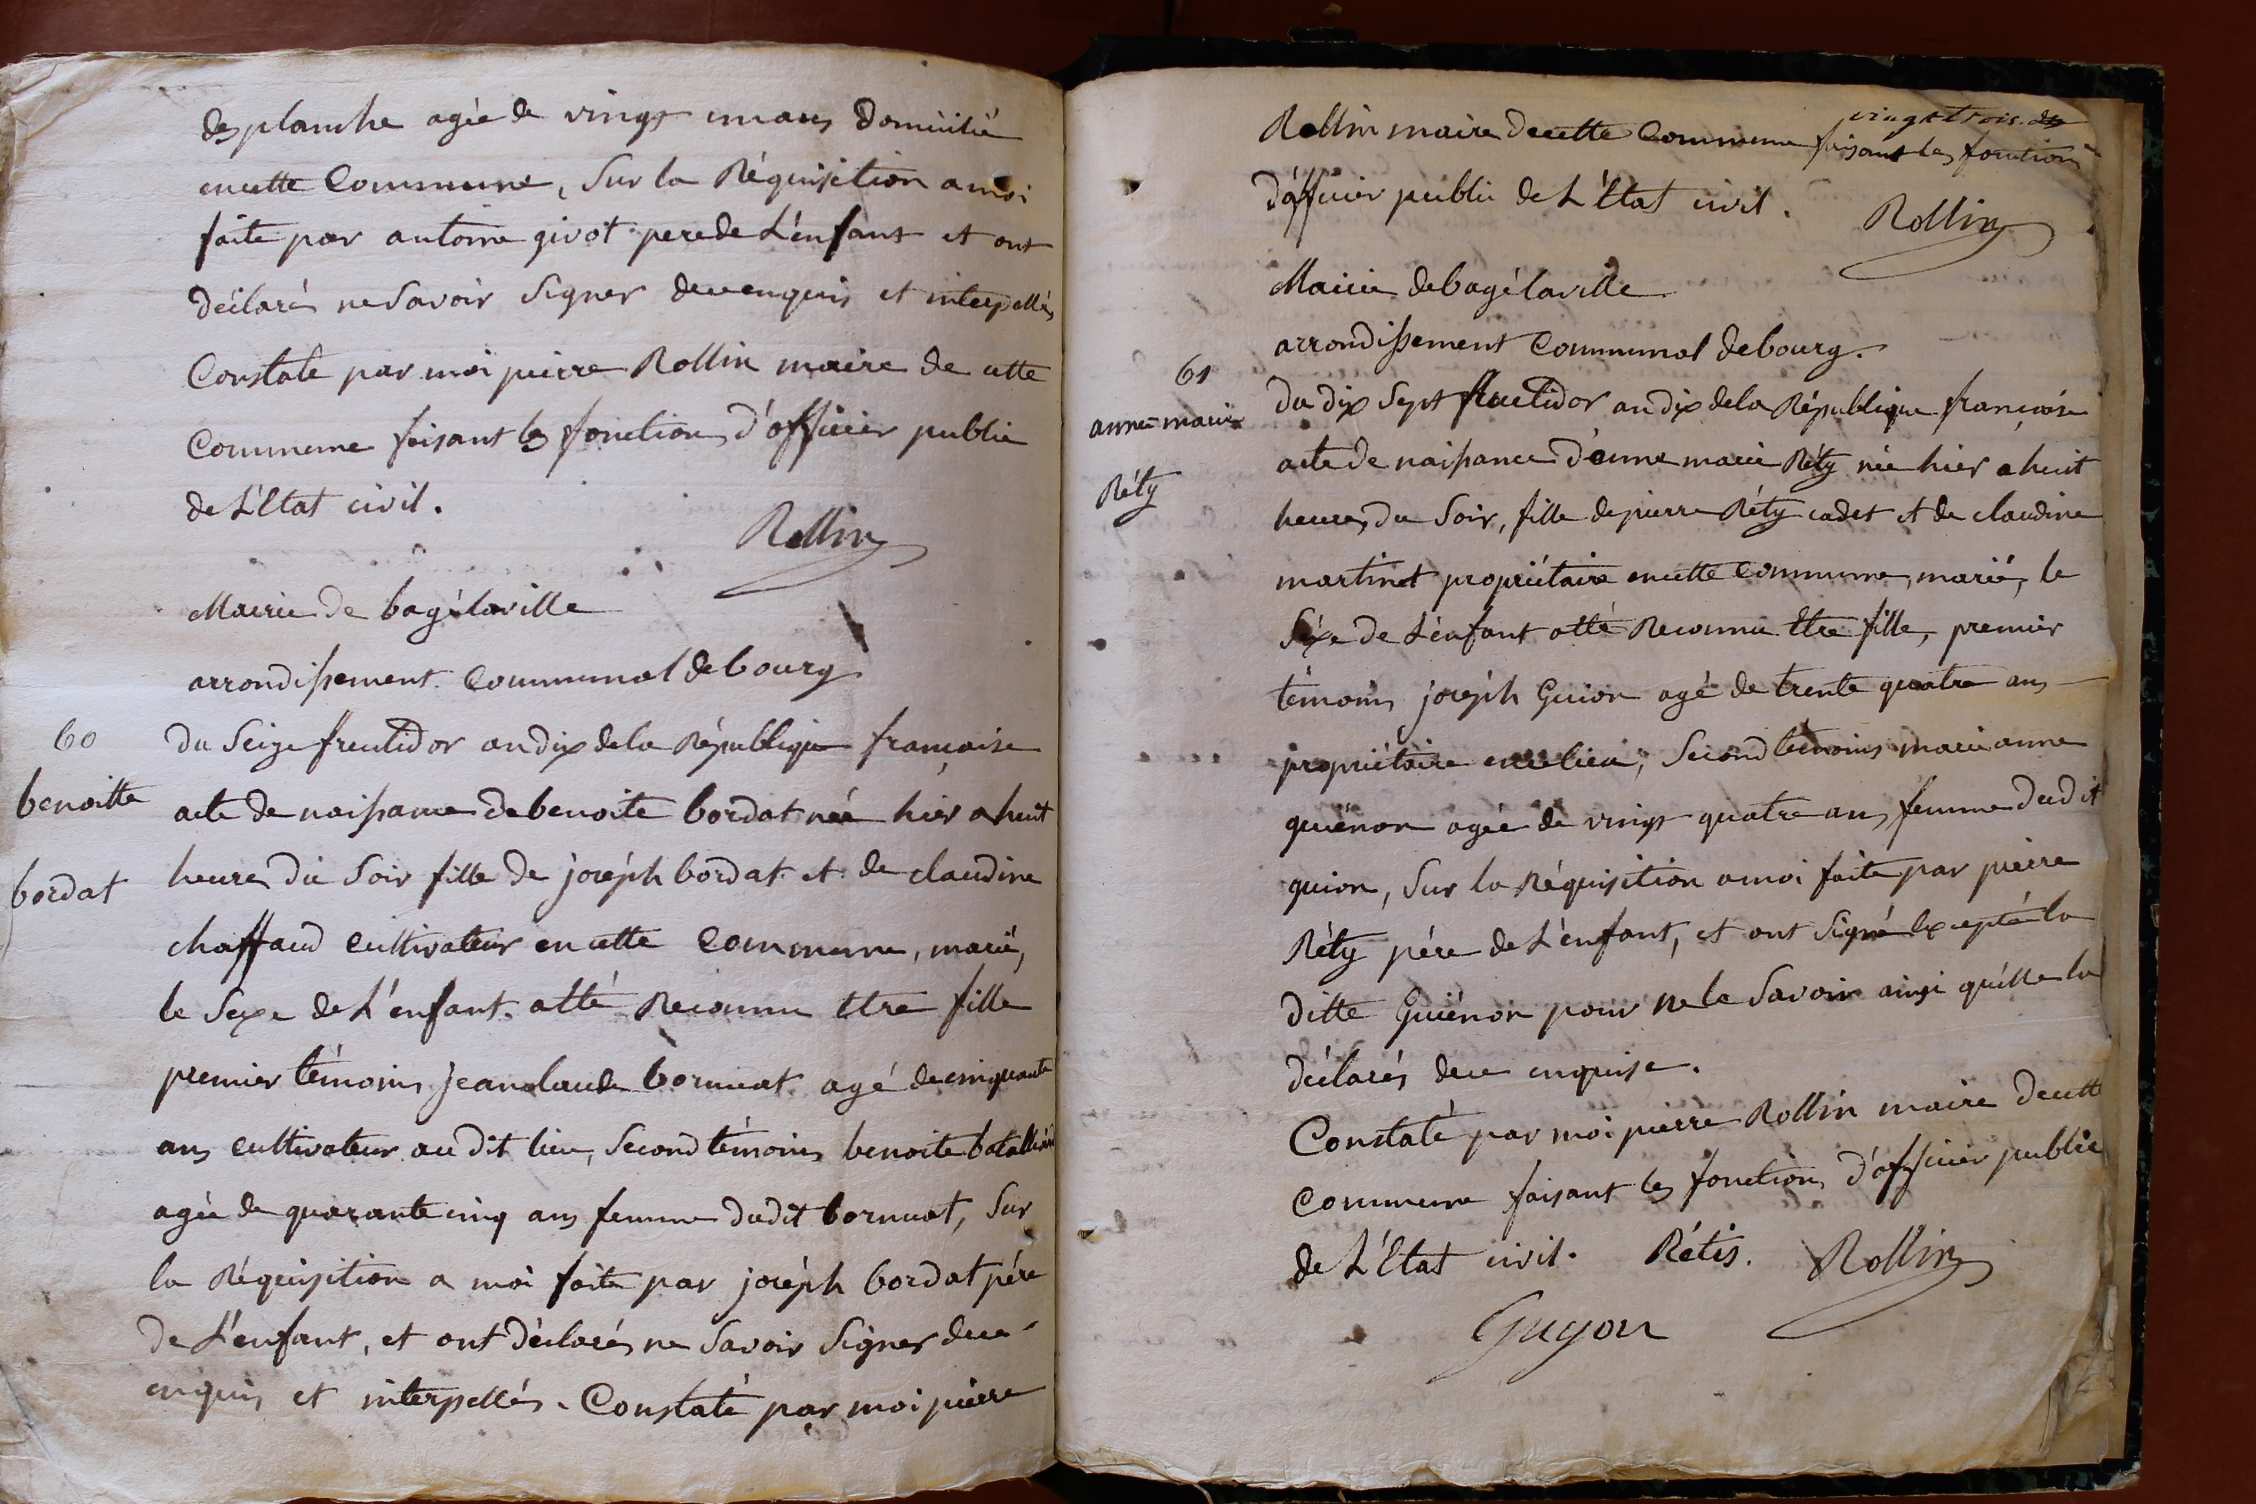 desplanche agée de vingt cinq ans domicilié
en cette Commune, Sur la Réquisition a moi
faite par antoine givot pere de L'enfant et ont
déclarés ne Savoir Signer de ce enquis et interpellés
Constaté par moi pierre Rollin maire de cette
Commune faisant les fonctions d'officier public
de L'Etat civil.
Rollin
Mairie de bagélaville
arrondissement Communal de bourg
60
du Seize fructidor an dix de la République française
benoitte
acte de naissance de benoite bordat née hier a huit
bordat
heures du Soir fille de joséph bordat et de claudine
chaffaud cultivateur en cette Commune, marié,
le Sexe de L'enfant a été Reconnu Etre fille
premier témoins jean claude bornuat agé de cinquante
ans cultivateur au dit lieu, Second témoins benoite
agée de quarante cinq ans femme dudit bornuat, Sur
la Réquisition a moi faite par joséph bordat pére
de L'enfant, et ont déclarés ne Savoir Signer de ce
enquis et interpellés. Constaté par moi pierre
vingt trois
Rollin maire de cette Commune faisant les fonctions
d'officier public de L'Etat civil.
Rollin
Mairie de bagélaville
arrondissement Communal de bourg.
61
du dix Sept fructidor an dix de la République françoise
anne-marie
acte de naissance d'anne marie Réty née hier a huit
Réty
heures du Soir, fille de pierre Réty cadet et de claudine
martinet propriétaire en cette Commune, marié, le
Séxe de L'énfant a été Reconnu Etre fille, premier
témoins joséph Guion agé de trente quatre ans
propriétaire en ce lieu, Second témoins marie anne
guiénon agée de vingt quatre ans femme dudit
guion, Sur la Réquisition a moi faite par pierre
Réty pére de L'énfant, et ont Signé Excepté la
ditte Guiénon pour ne le Savoir ainsi qu'élle la
déclarés de ce enquise.
Constaté par moi pierre Rollin maire de cette
Commune faisant les fonctions d'officier public
de L'Etat civil. Rétis. Rollin
Guyon